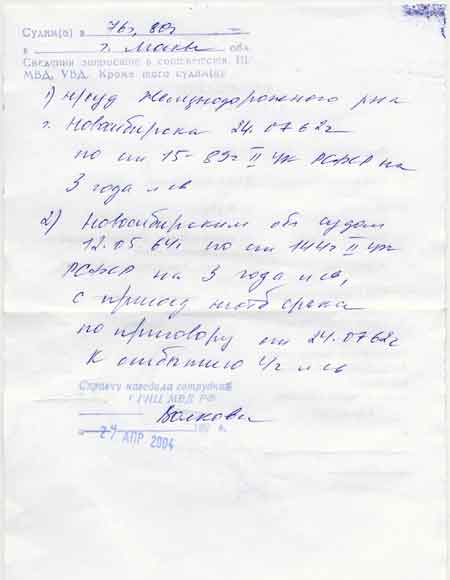 Судим(а) в 76г, 80г
в г. Москв обл.
Сведения запросите в соответств.
МВД, УВД. Кроме того судим(а)
1) Нсуд Железнодорожного р-на
г. Новосибирска 24.07.62г
по ст 15-89г II УК РСФСР на
3 года л св
2) Новосибирским обл судом
12.05.64г по ст 144г II УК
РСФСР на 3 года л св,
с присоед срока
по приговору от 24.07.62г
К отбытию 4г л св
Справку наводила сотрудник
ГИЦ МВД РФ
Волкова
29 АПР. 2004